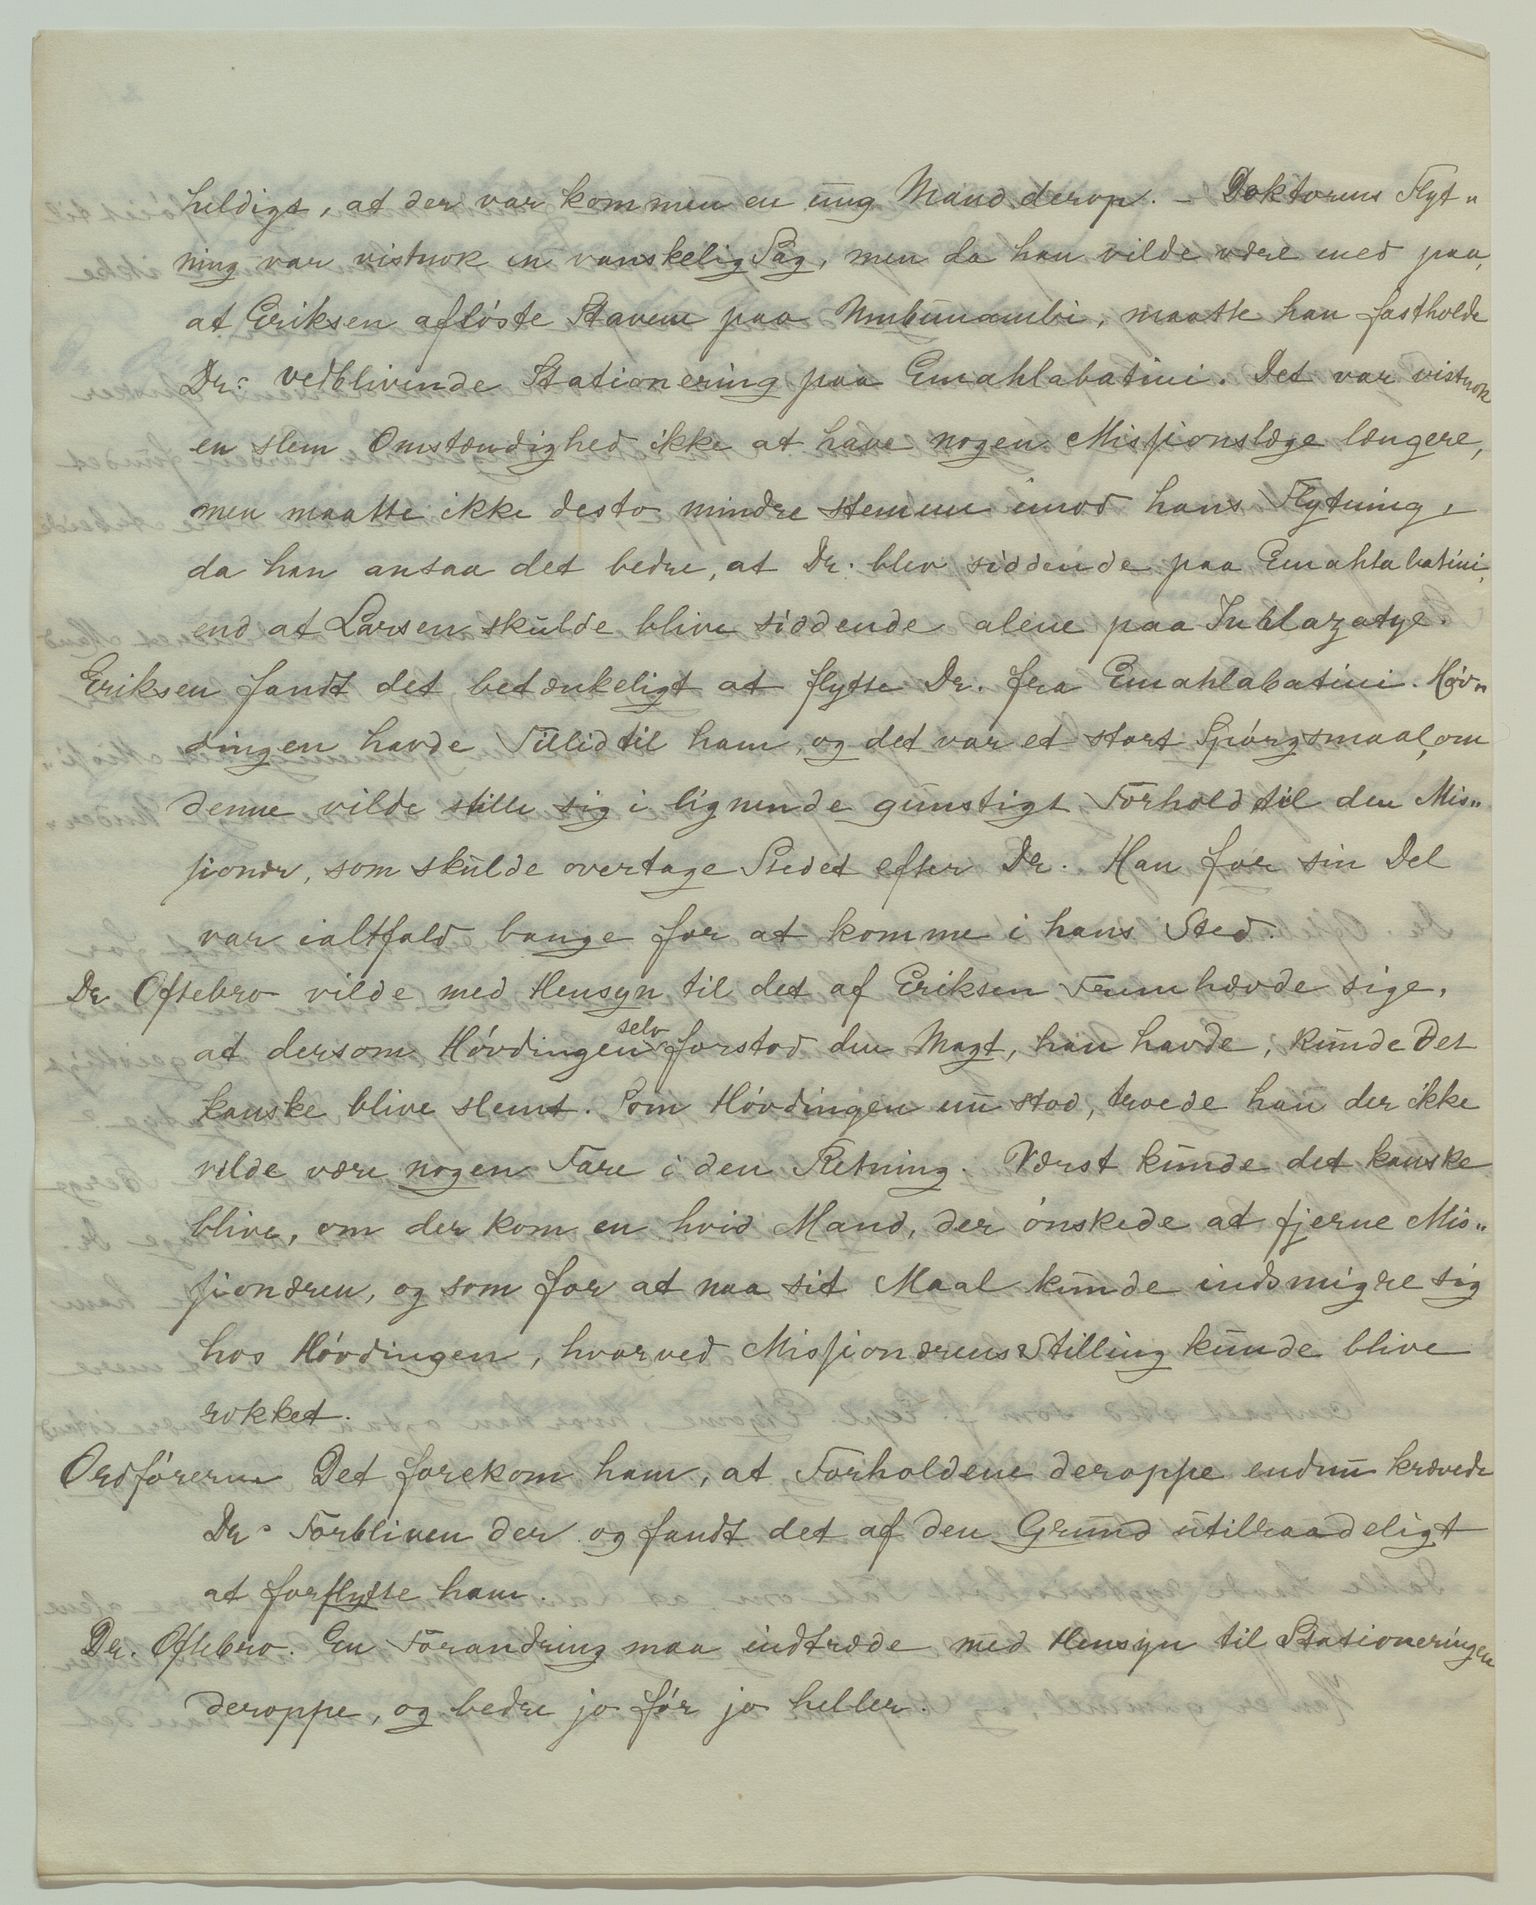 heldigt, at der var kommen en ung Mand derop. – Doktorens Flyt„
ning var vistnok en vanskelig Sag, men da han vilde være med paa,
at Eriksen afløste Stavem paa Umbunambi, maatte han fastholde
Dr:s vedblivende Stationering paa Emahlabatini. Det var vistnok
en slem Omstændighed ikke at have nogen Missionslæge længere,
men maatte ikke desto mindre stemme imod hans Flytning,
da han ansaa det bedre, at Dr. blev siddende paa Emahlabatini,
end at Larsen skulde blive siddende alene paa Inhlazatye.
Eriksen fandt det betænkeligt at flytte Dr. fra Emahlabatini. Høv„
dingen havde Tillid til ham, og det var et stort Spørgsmaal, om
denne vilde stille sig i lignende gunstigt Forhold til den Mis„
sionær, som skulde overtage Stedet efter Dr. Han for sin Del
var ialtfald bange for at komme i hans Sted.
Dr. Oftebro vilde med Hensyn til det af Eriksen Fremhævde sige,
at dersom Høvdingen selv forstod den Magt, han havde, kunde det
kanske blive slemt. Som Høvdingen nu stod, troede han der ikke
vilde være nogen Fare i den Retning. Værst kunde det kanske
blive, om der kom en hvid Mand, der ønskede at fjerne Mis„
sionæren, og som for at naa sit Maal kunde indsmigre sig
hos Høvdingen, hvorved Missionærens Stilling kunde blive
rokket.
Ordføreren Det forekom ham, at Forholdene deroppe endnu krævede
Drs Forbliven der og fandt det af den Grund utilraadeligt
at forflytte ham.
Dr. Oftebro. En Forandring maa indtræde med Hensyn til Stationeringen
deroppe, og bedre jo før jo heller.